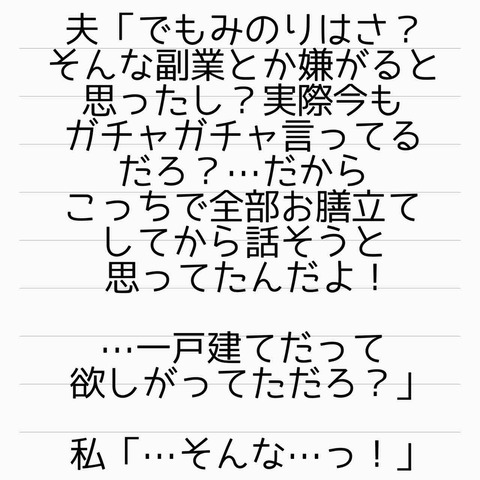 夫「でもみのりはさ？
そんな副業とか嫌がると
思ったし？実際今も
ガチャガチャ言ってる
だろ？…だから
こっちで全部お膳立て
してから話そうと
思ってたんだよ！
…一戸建てだって
欲しがってただろ？」
私「…そんな…っ！」